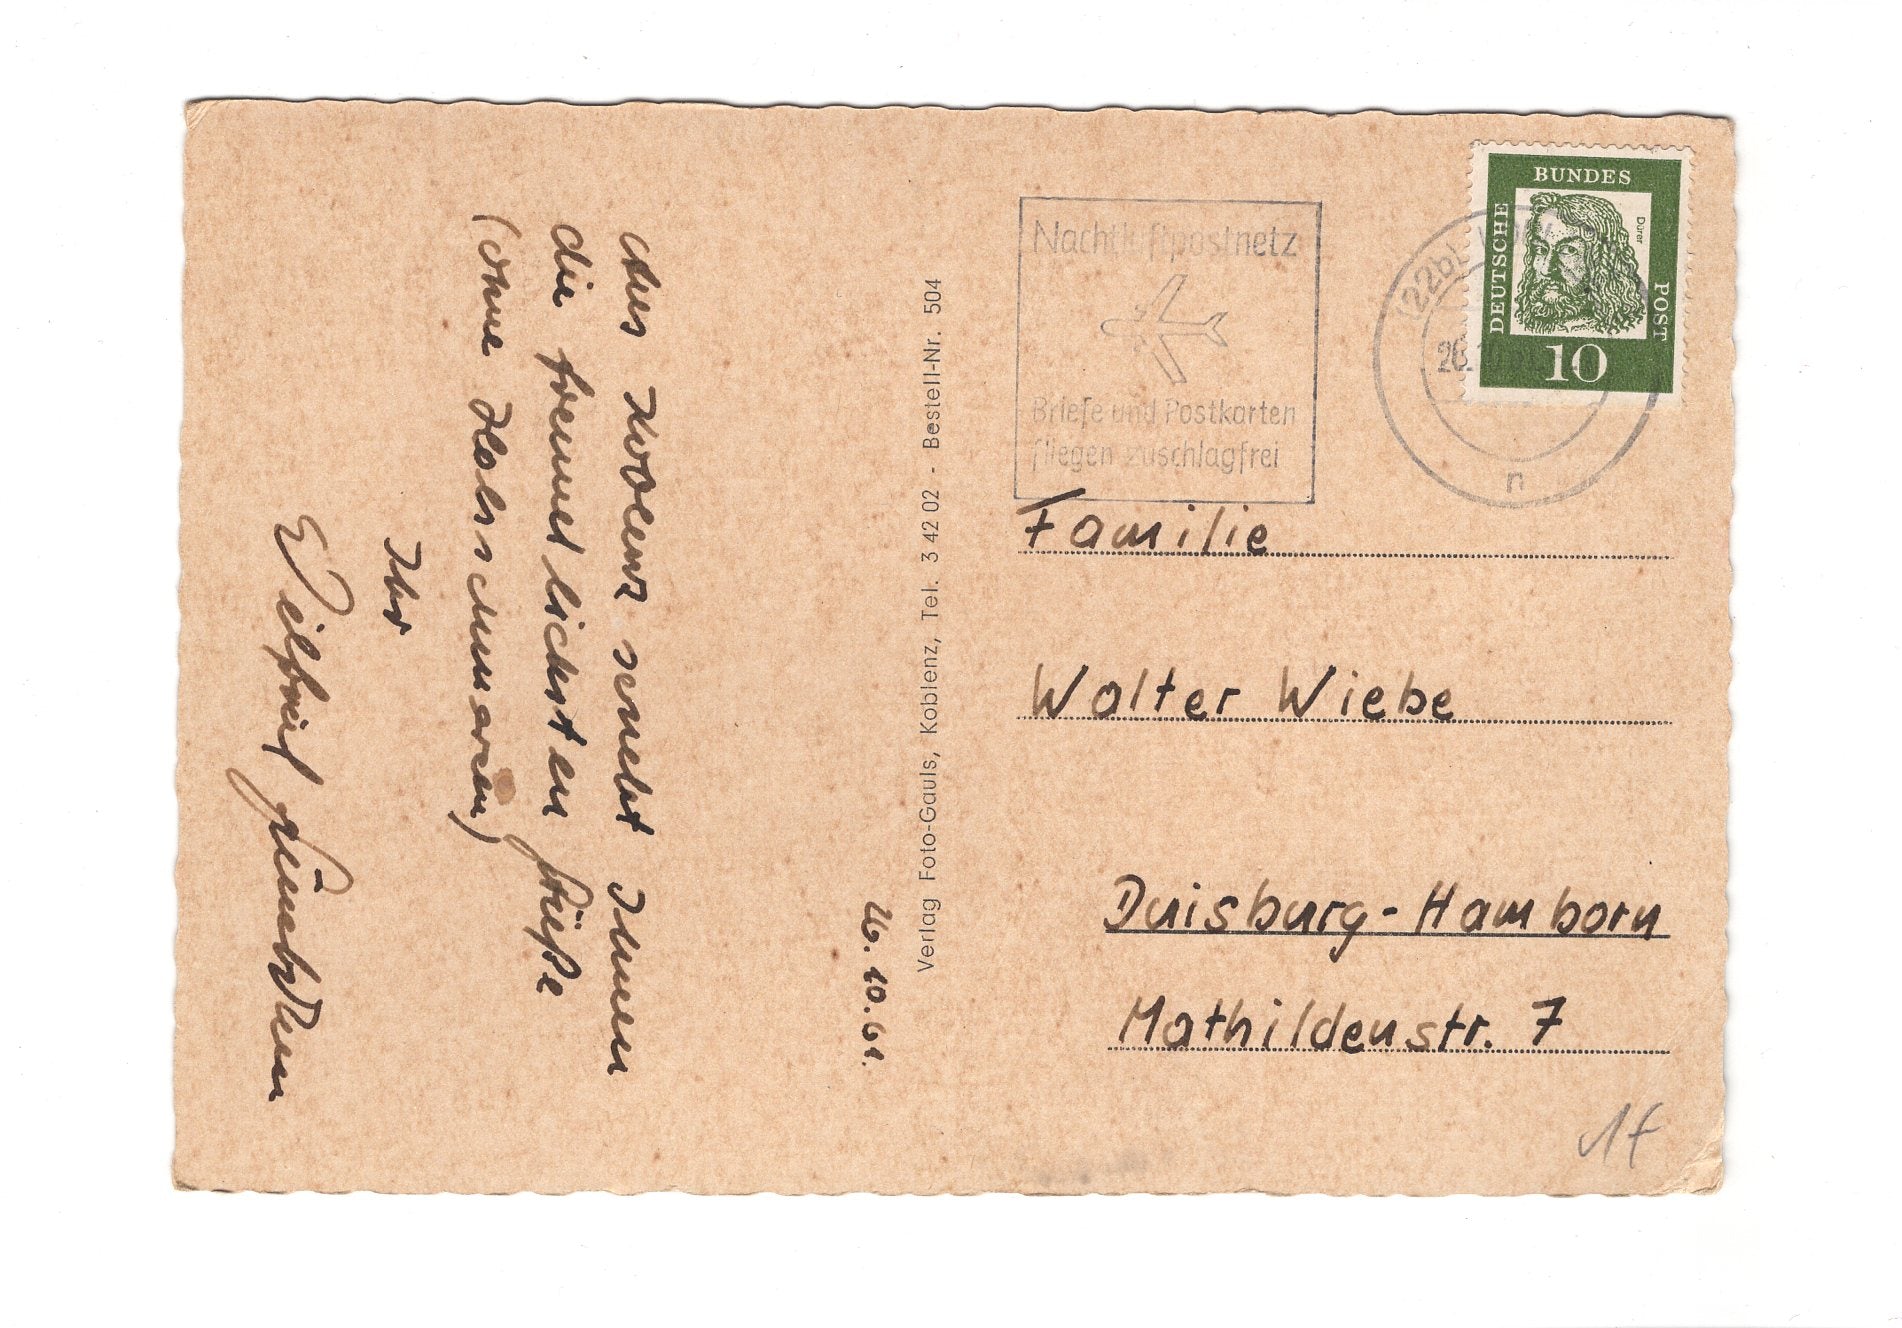 26. 10. 61.
Aus Koblenz sendet Ihnen
die freundlichsten Grüße
(ohne Halsschmerzen)
Ihr
Wilfried
Verlag Foto-Gauls, Koblenz, Tel. 3 42 02 - Bestell-Nr. 504
Nachtluftpostnetz
Briefe und Postkarten
fliegen zuschlagfrei
(22b)
n
DEUTSCHE
BUNDES
POST
Dürer
10
Familie
Walter Wiebe
Duisburg-Hamborn
Mathildenstr. 7